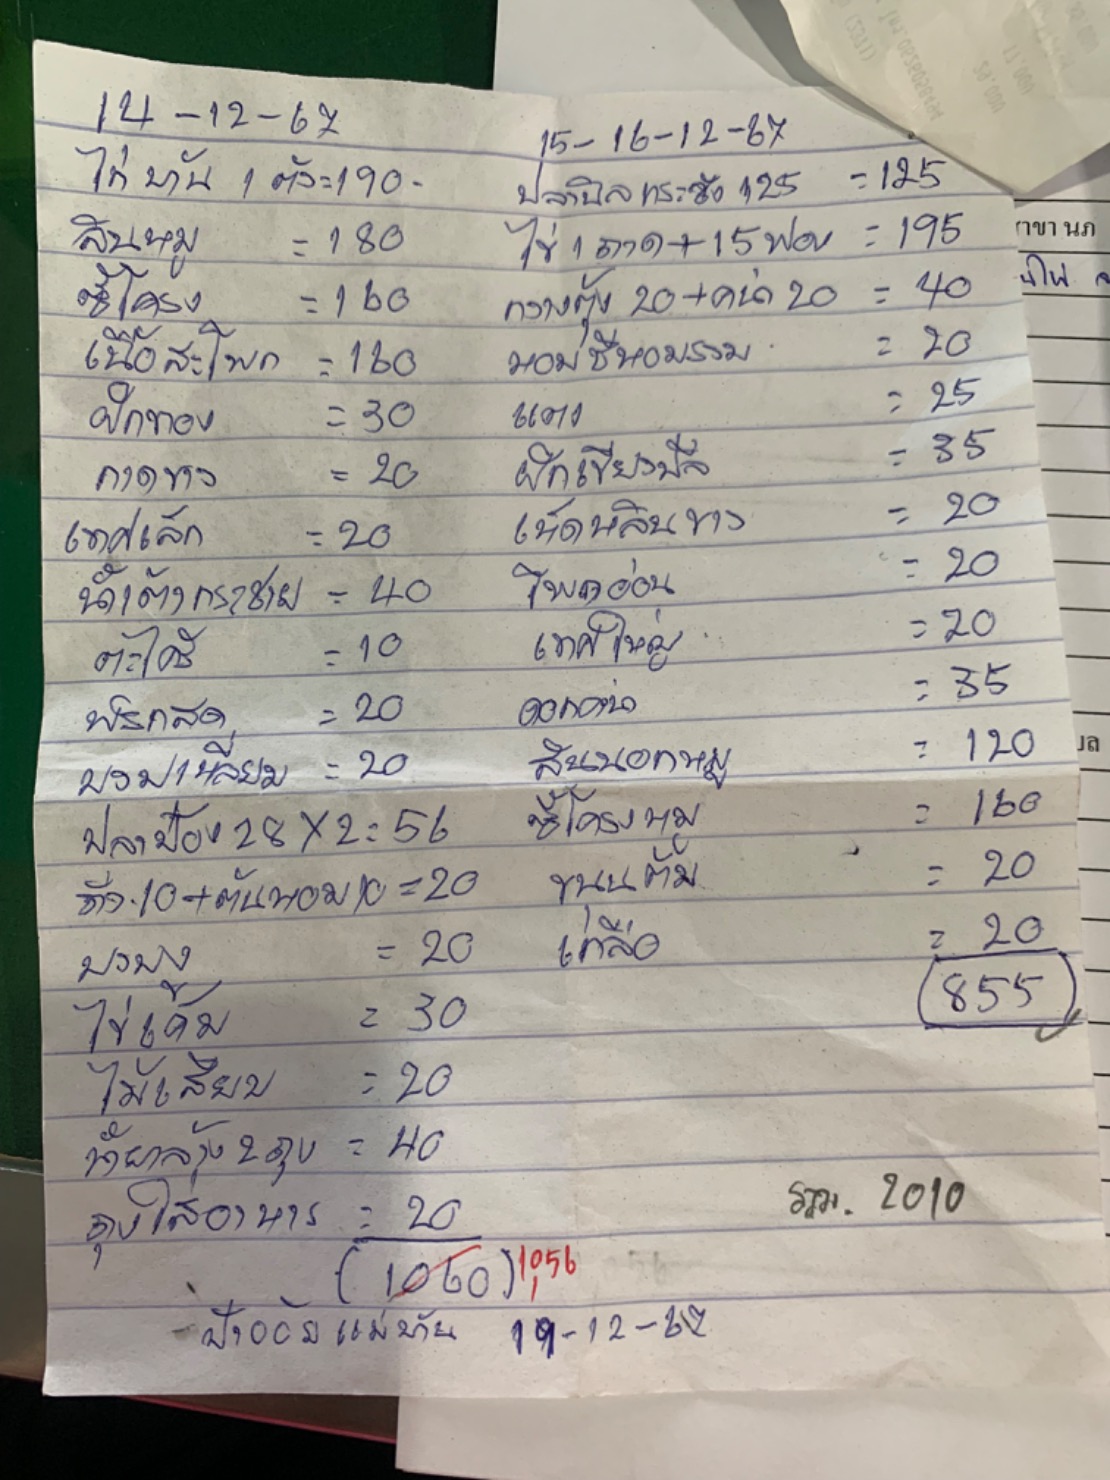 14-12-67
ไก่บ้าน 1 ตัว=190-
สันหมู =180
ซี่โครง =160
เนื้อสะโพก =160
ฝักทอง =30
กาดขาว =20
เทศเล็ก =20
น้ำเต้ากระชาย = 40
ตะไคร้ =10
พริกสด =20
บวบเหลี่ยม =20
ปลาป๋อง 28X2=56
ถั่ว.10+ต้นหอม10=20
บวบงู =20
ไข่เค็ม = 30
ไม้เสียบ =20
น้ำยาล้าง 2 ถุง = 40
ถุงใส่อาหาร =20
(1060) 1056
ป้าออ๊ด แม่บ้าน 19-12-67
15-16-12-67
ปลานิลกระชัง 125 =125
ไข่ 1 ถาด+15ฟอง =195
กวางตุ้ง 20+คน้า 20 = 40
หอมชีหอมรวม =20
แตง =25
ฝักเขียวฟัล =35
เห็ดหลินขาว =20
โพดอ่อน =20
เทศใหญ่ =20
ดอกกล่ำ =35
สันนอกหมู = 120
ซี่โครงหมู = 160
ขนนต้ม = 20
เกลือ =20
855
รวม. 2010
สาขา นภ
บล